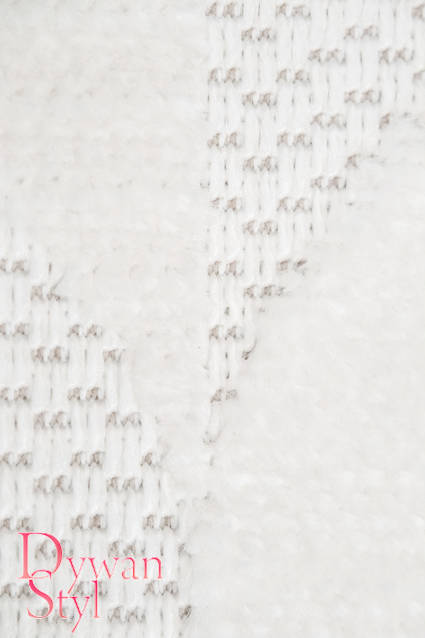 Dywan
Styl